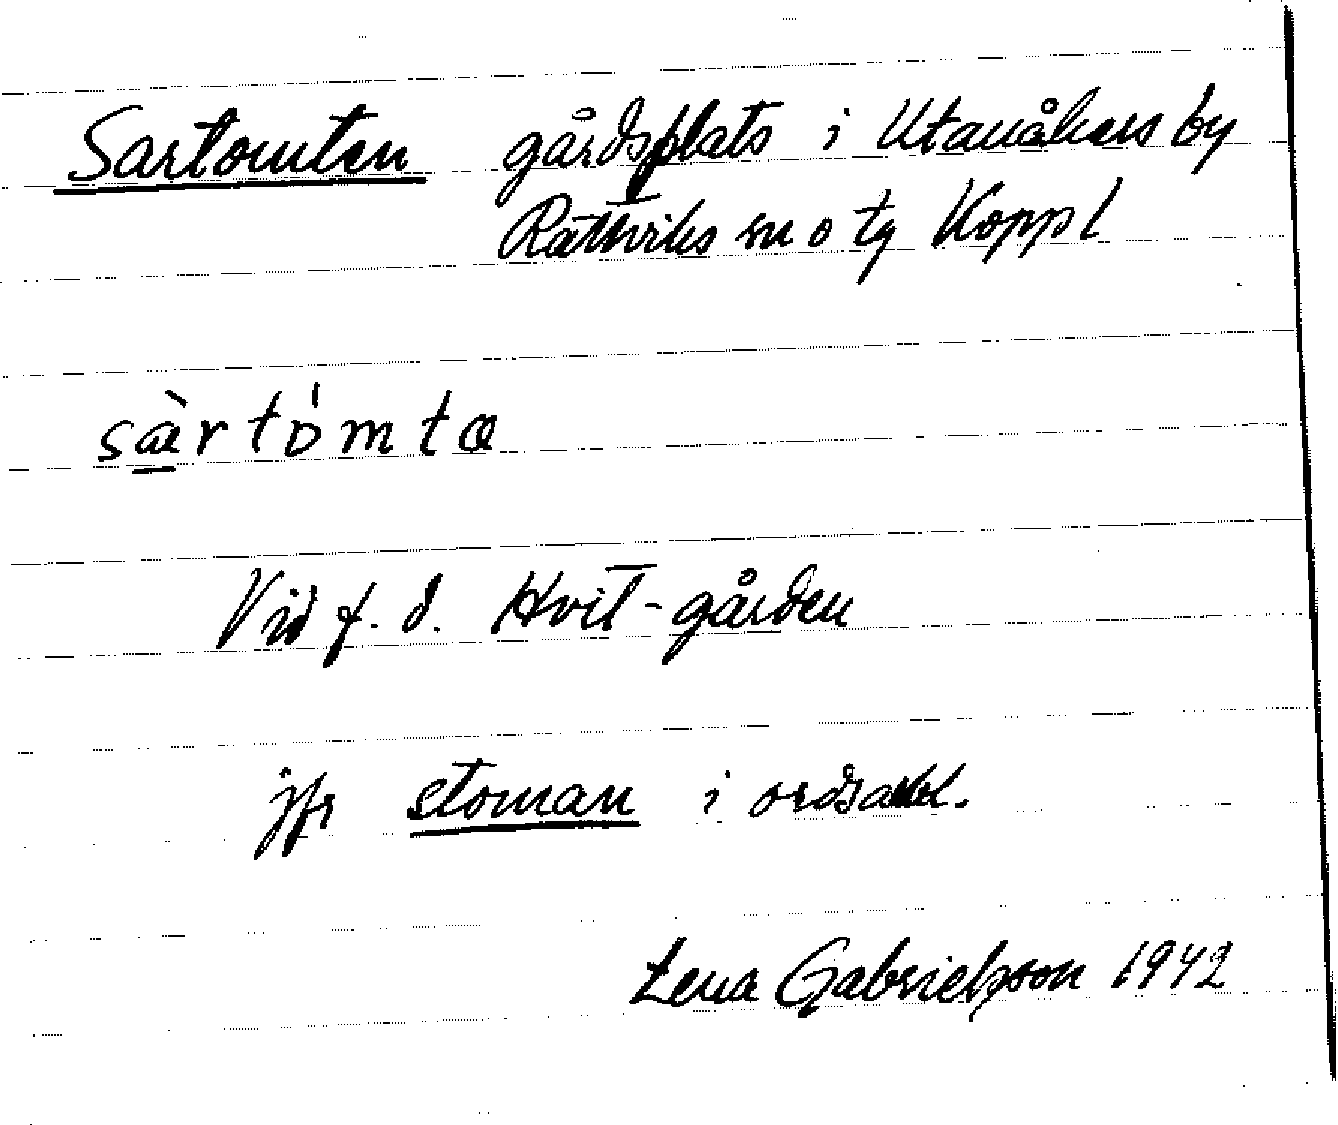 Sartomten gårdsplats i Utanåkers by
Rättviks sn o tg Koppl
sàrtòmta
Vid f. d. Hvit-gården
jfr stoman i ordsaml.
Lena Gabrielsson 1942